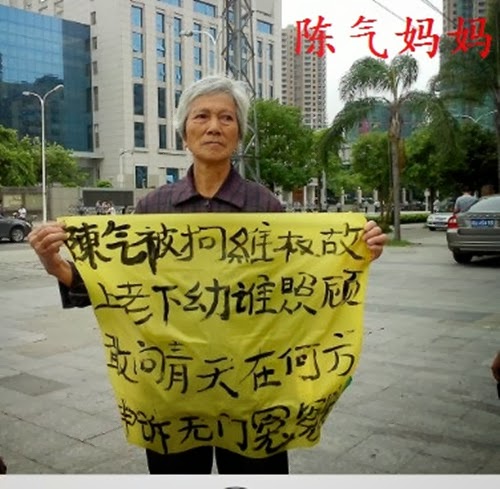 陈气妈妈
陳气被拘維权故
上老下幼谁照顾
敢问青天在何方
申诉无门冤冤